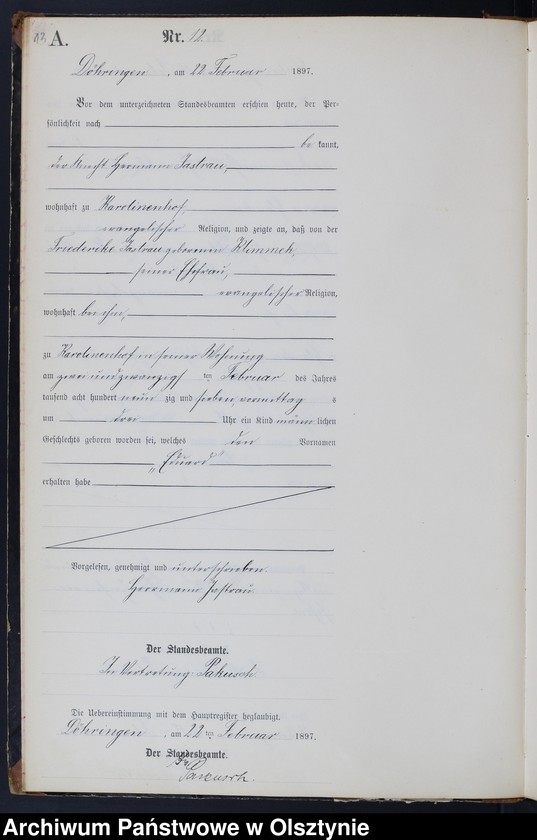 13 A. Nr. 12.
Döhringen, am 22 Februar 1897.
Vor dem unterzeichneten Standesbeamten erschien heute, der Per-
sönlichkeit nach
be kannt,
der Knecht Hermann Jastrau,
wohnhaft zu Karolinenhof,
evangelischer Religion, und zeigte an, daß von der
Friederike Jastrau geborenen Klimmek,
seiner Ehefrau,
evangelischer Religion,
wohnhaft bei ihm,
zu Karolinenhof in seiner Wohnung
am zwei und zwanzigs ten Februar des Jahres
tausend acht hundert neun zig und sieben, vormittag s
um drei Uhr ein Kind männ lichen
Geschlechts geboren worden sei, welches den Vornamen
„Eduard“
erhalten habe
Vorgelesen, genehmigt und unterschrieben.
Herrmann Jastrau.
Der Standesbeamte.
In Vertretung: Pakusch.
Die Uebereinstimmung mit dem Hauptregister beglaubigt.
Döhringen, am 22 ten Februar 1897.
Der Standesbeamte.
Pakusch.
Archiwum Państwowe w Olsztynie